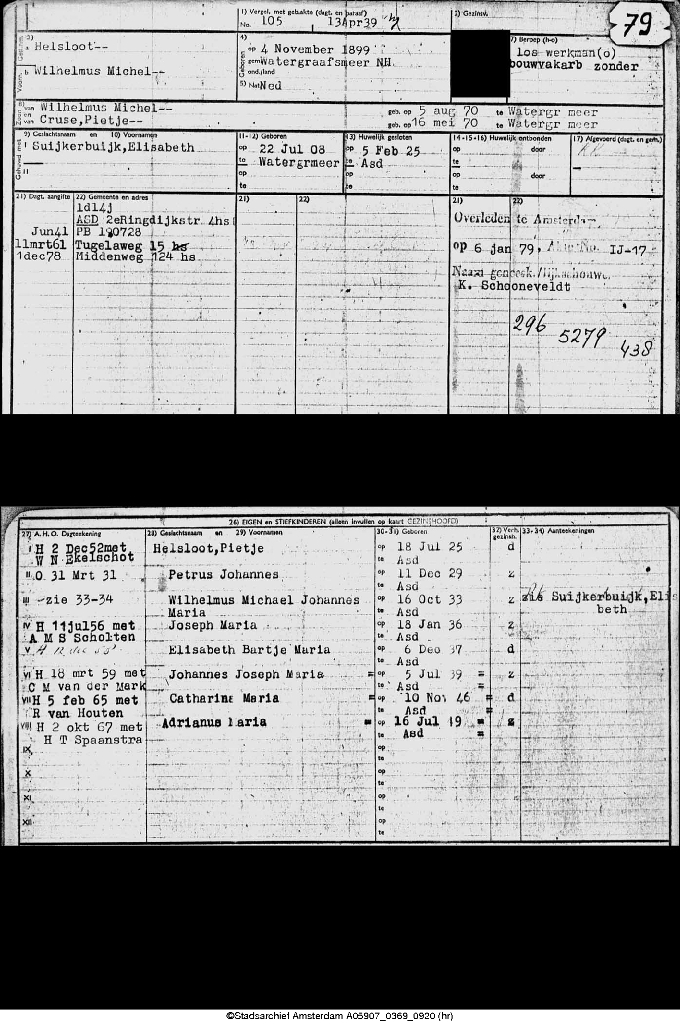 1) Vergel. met gebakte (dagt. en paraaf)
No. 105 13Apr39
2) Gezinsv.
79
3)
Helsloot--
Wilhelmus Michel--
4)
op 4 November 1899
gem Watergraafsmeer NH.
ond.land
5) Nat Ned
7) Beroep (h-o)
los werkman(o)
bouwvakarb zonder
8)
van Wilhelmus Michel--
en
van Cruse,Pietje--
geb. op 5 aug 70 te Watergr meer
geb. op 16 mei 70 te Watergr meer
9) Geslachtsnaam en 10) Voornamen
I Suijkerbuijk,Elisabeth
II
11-12) Geboren
op 22 Jul 08
te Watergrmeer
op
te
13) Huwelijk gesloten
op 5 Feb 25
te Asd
op
te
14-15-16) Huwelijk ontbonden
op door
te
op door
te
17) Afgevoerd (dagt. en gem.)
21) Dagt. aangifte
22) Gemeente en adres
21)
22)
21)
22)
1d14j
ASD 2eRingdijkstr 4hs
Jun41 PB 190728
11mrt61 Tugelaweg 15 hs
1dec78 Middenweg 124 hs
Overleden te Amsterdam
op 6 jan 79, Akte No. IJ-17
Naam geneesk./lijkschouwer
K. Schooneveldt
296 5279 438
26) EIGEN en STIEFKINDEREN (alleen invullen op kaart GEZINSHOOFD)
27) A. H. O. Dagtekening
28) Geslachtsnaam en 29) Voornamen
30-31) Geboren
32) Verh. gezinsh.
33-34) Aantekeningen
I H 2 Dec52met
W N Ekelschot
Helsloot,Pietje
op 18 Jul 25 d
te Asd
II O 31 Mrt 31
Petrus Johannes
op 11 Dec 29 z
te Asd
III -zie 33-34
Wilhelmus Michael Johannes
Maria
op 16 Oct 33 z
te Asd
zie Suijkerbuijk,Elis
beth
IV H 11jul56 met
A M S Scholten
Joseph Maria
op 18 Jan 36 z
te Asd
V
Elisabeth Bartje Maria
op 6 Dec 37 d
te Asd
VI H 18 mrt 59 met
C M van der Mark
Johannes Joseph Maria =
op 5 Jul 39 = z
te Asd =
VII H 5 feb 65 met
R van Houten
Catharina Maria =
op 10 Nov 46 = d
te Asd =
VIII H 2 okt 67 met
H T Spaanstra
Adrianus Maria =
op 16 Jul 49 = z
te Asd =
IX
op
te
X
op
te
XI
op
te
XII
op
te
©Stadsarchief Amsterdam A05907_0369_0920 (hr)